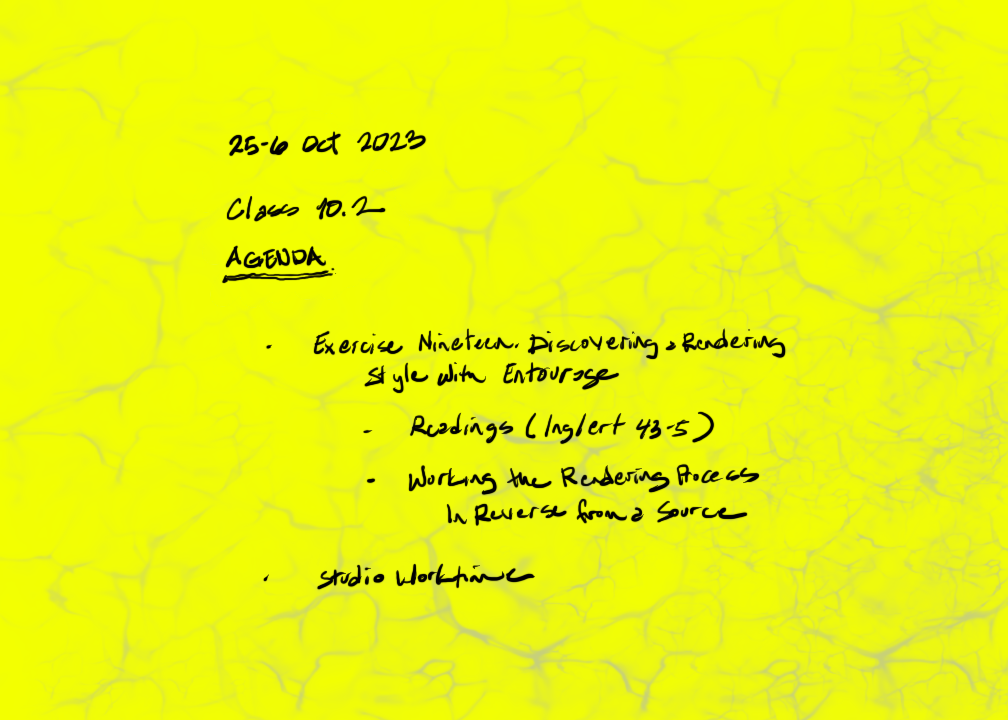 25-6 Oct 2023
Class 10.2
AGENDA.
· Exercise Nineteen. Discovering a Rendering
Style with Entourage
- Readings (Inglert 43-5)
- Working the Rendering Process
In Reverse from a Source
· Studio Worktime